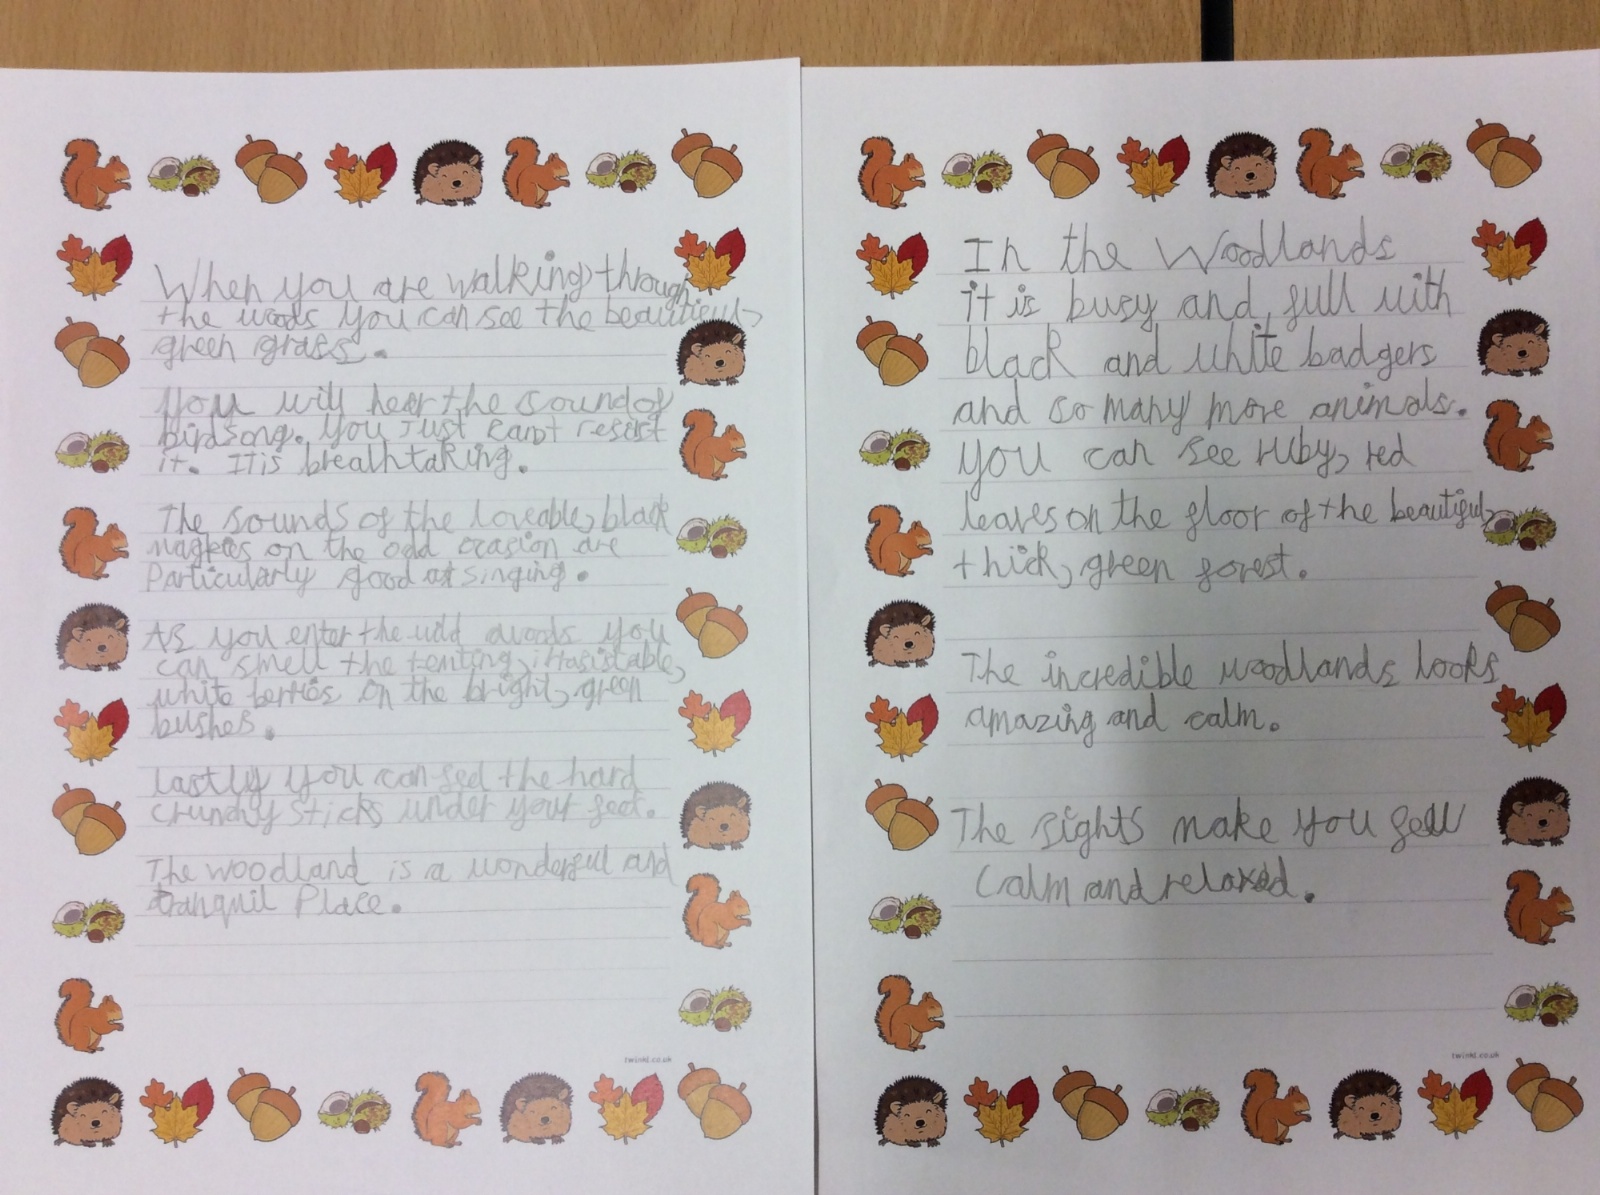 When you are walking through
the woods you can see the beautiful,
green grass.
You will hear the sound of
birdsong. You Just canot resist
it. It is breahtaking.
The sounds of the loveable, black
magpies on the odd ocasion are
Particularly good at singing.
As you enter the wild woods you
can smell the temting, irrasistable,
white berries on the bright, green
bushes.
lastly you can feel the hard
crunchy sticks under your feet.
The woodland is a wonderful and
tranquil Place.
twinkl.co.uk
In the Woodlands
it is busy and full with
black and white badgers
and so many more animals.
you can see ruby, red
leaves on the floor of the beautiful,
thick, green forest.
The incredible woodlands looks
amazing and calm.
The sights make you feel
Calm and relaxed.
twinkl.co.uk